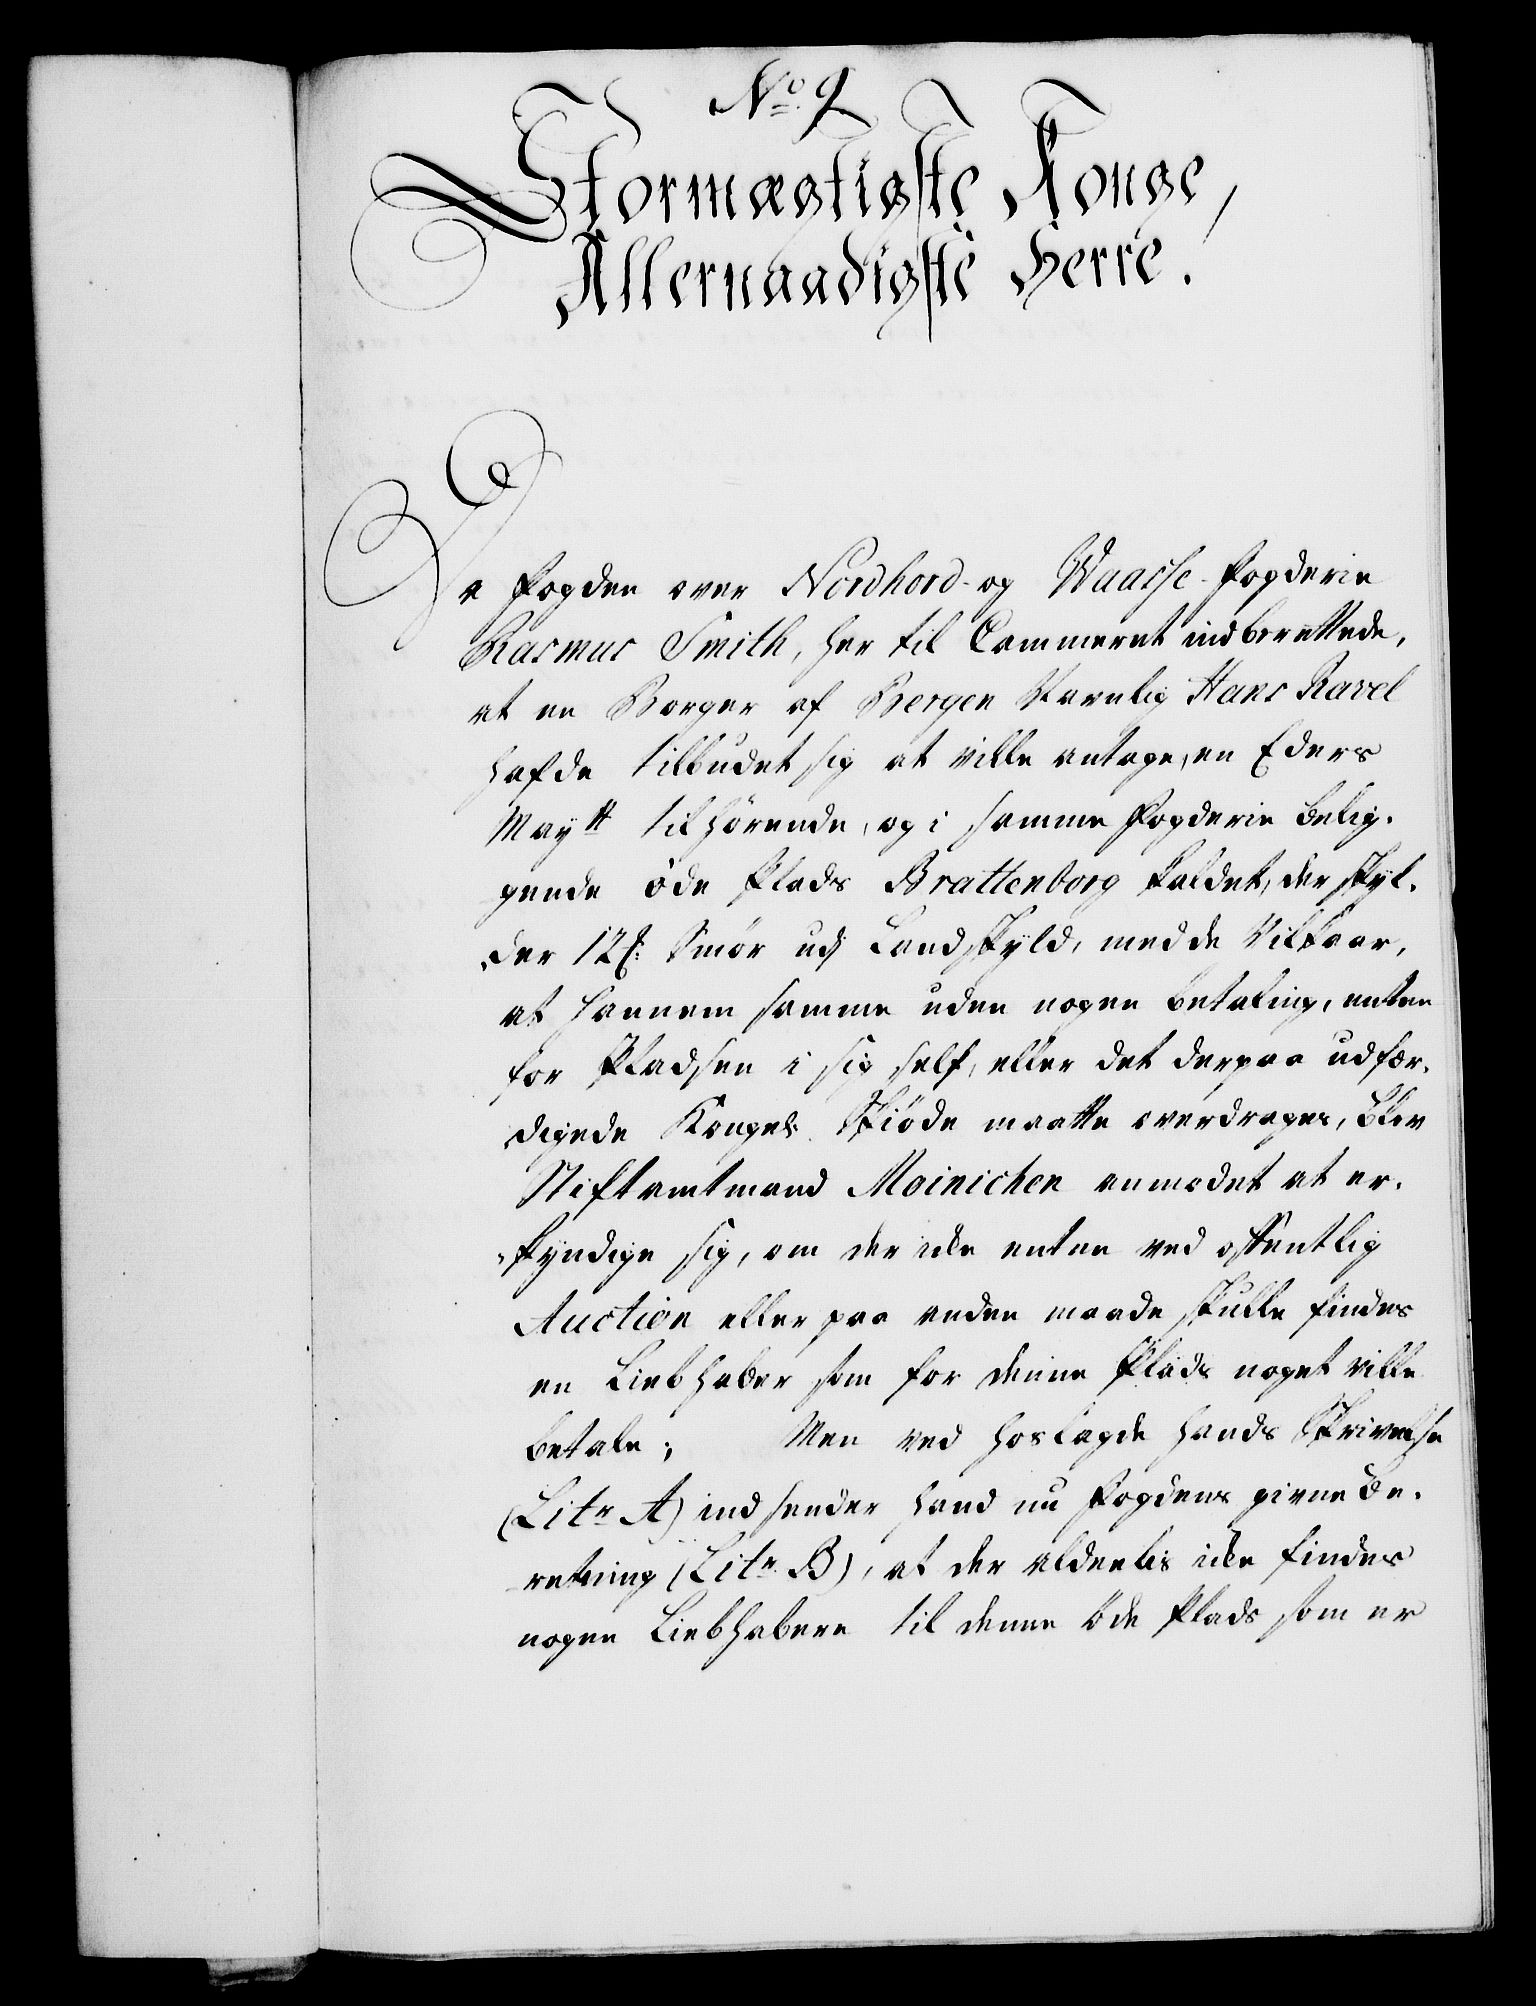 No. 9
Stormægtigste Konge,
Allernaadigste Herre!
Da Fogden over Nordhord- og Waasse-Fogderie
Rasmus Smith, her til Cammeret indberettede,
at en Borger af Bergen Navnlig Hans Ravel
hafde tilbudet sig at ville antage, en Eders
Maytt tilhørende, og i samme Fogderie belig-
gende öde Plads Brattenborg kaldet, der skyl-
der 12 Smör udj Landskyld, med de Vilkaar,
at hannem samme uden nogen betaling, enten
for Pladsen i sig self, eller det derpaa udfær-
digede Kongel: Skiöde maatte overdrages, blev
Stiftamtmand Moinichen anmodet at er-
kyndige sig, om der icke enten ved offentlig
Auction eller paa anden maade skulle findes
en Liebhaber som for denne Plads noget ville
betale; Men ved hoslagde hands Skrivelse
(Litr A) indsender hand nu Fogdens givne Be-
retning (Litr. B), at der aldeelis icke findes
nogen Liebhabere til denne öde Plads som er